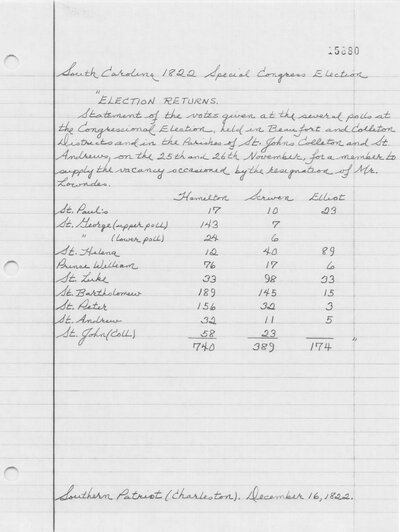 15880
South Carolina 1822 Special Congress Election
"ELECTION RETURNS.
Statement of the votes given at the several polls at
the Congressional Election, held in Beaufort and Colleton
Districts and in the Parishes of St. Johns Colleton and St.
Andrews, on the 25th and 26th November, for a member to
supply the vacancy occasioned by the resignation of Mr.
Lowndes.
Hamilton Scriven Elliot
St. Paul's 17 10 23
St. George (upper poll) 143 7
" (lower poll) 24 6
St. Helena 12 40 89
Prince William 76 17 6
St. Luke 33 98 33
St. Bartholomew 189 145 15
St. Peter 156 32 3
St. Andrew 32 11 5
St. John (Coll) 58 23
740 389 174 "
Southern Patriot (Charleston). December 16, 1822.